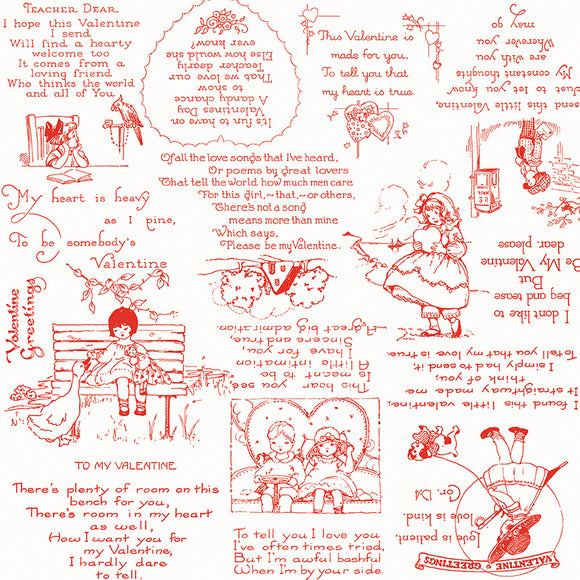 TEACHER DEAR
I hope this Valentine
I send
Will find a hearty
welcome too
It comes from a
loving friend
Who thinks the world
and all of You
It's fun to have on
Valentines Day
A dandy chance
to show
That we love our
Teacher dearly
Else how would she
ever know?
This Valentine is
made for you,
To tell you that
my heart is true.
send this little Valentine,
Just to let you know
My constant thoughts
are with you
Wherever you
may go
Of all the love songs that I've heard,
Or poems by great lovers
That tell the world how much men care
For this girl, ~ that, ~ or others,
There's not a song
means more than mine
Which says,
Please be my Valentine.
My heart is heavy
as I pine,
To be somebody's
Valentine
Valentine
Greetings
I don't like to
beg and tease
But
Be My Valentine
dear, please
This heart you see
Is meant to be
A little intimation
I have for you,
Sincere and true,
A great big admiration
I found this little valentine,
It straightway made me
think of you,
I simply had to send it
To tell you that my love is true.
TO MY VALENTINE
There's plenty of room on this
bench for you,
There's room in my heart
as well,
How I want you for
my Valentine,
I hardly dare
to tell.
To tell you I love you
I've often times tried,
But I'm awful bashful
When I'm by your side.
VALENTINE GREETINGS
Love is patient,
Love is kind.
Cor. 13:4